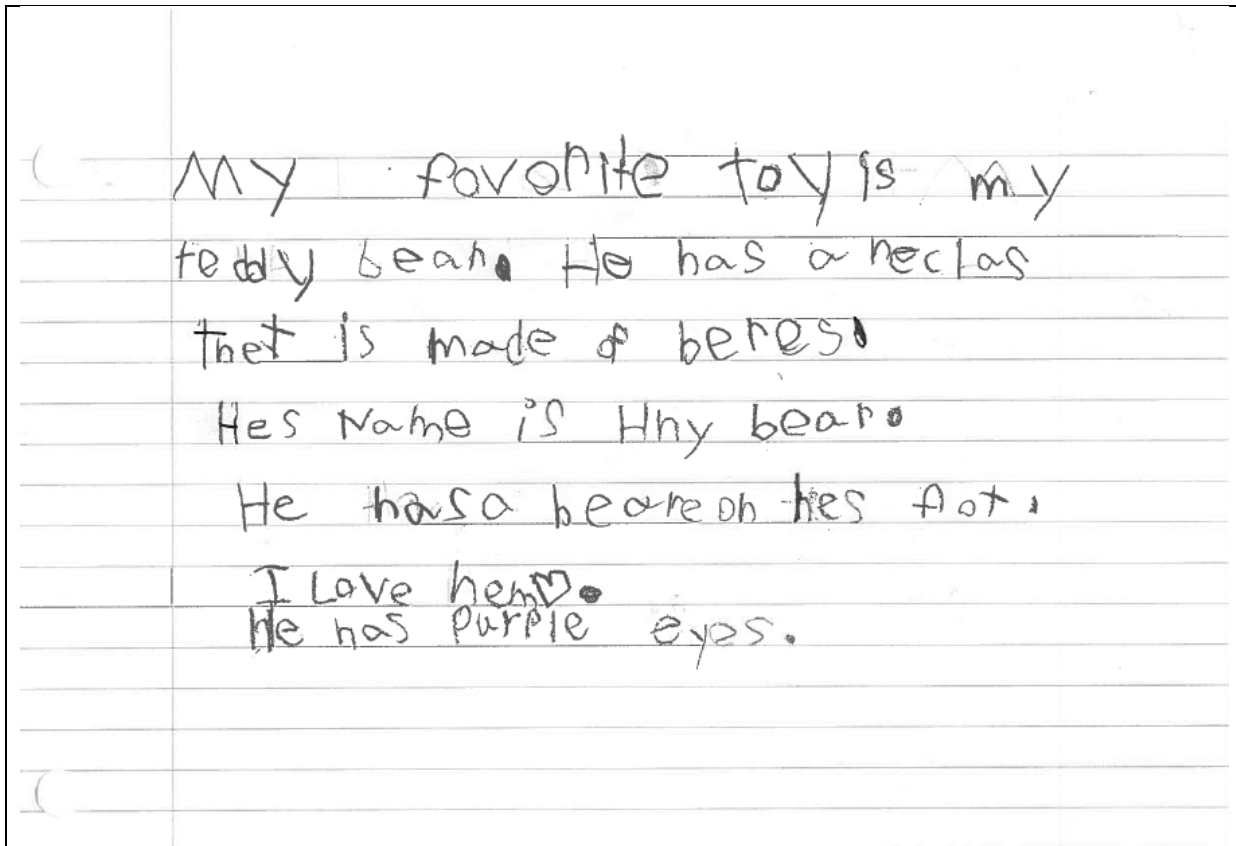 My favorite toy is my
teddy bear. He has a neclas
thet is made of beres.
Hes Name is Hny bear.
He has a beare on hes fot.
I Love hem♡.
He has purple eyes.